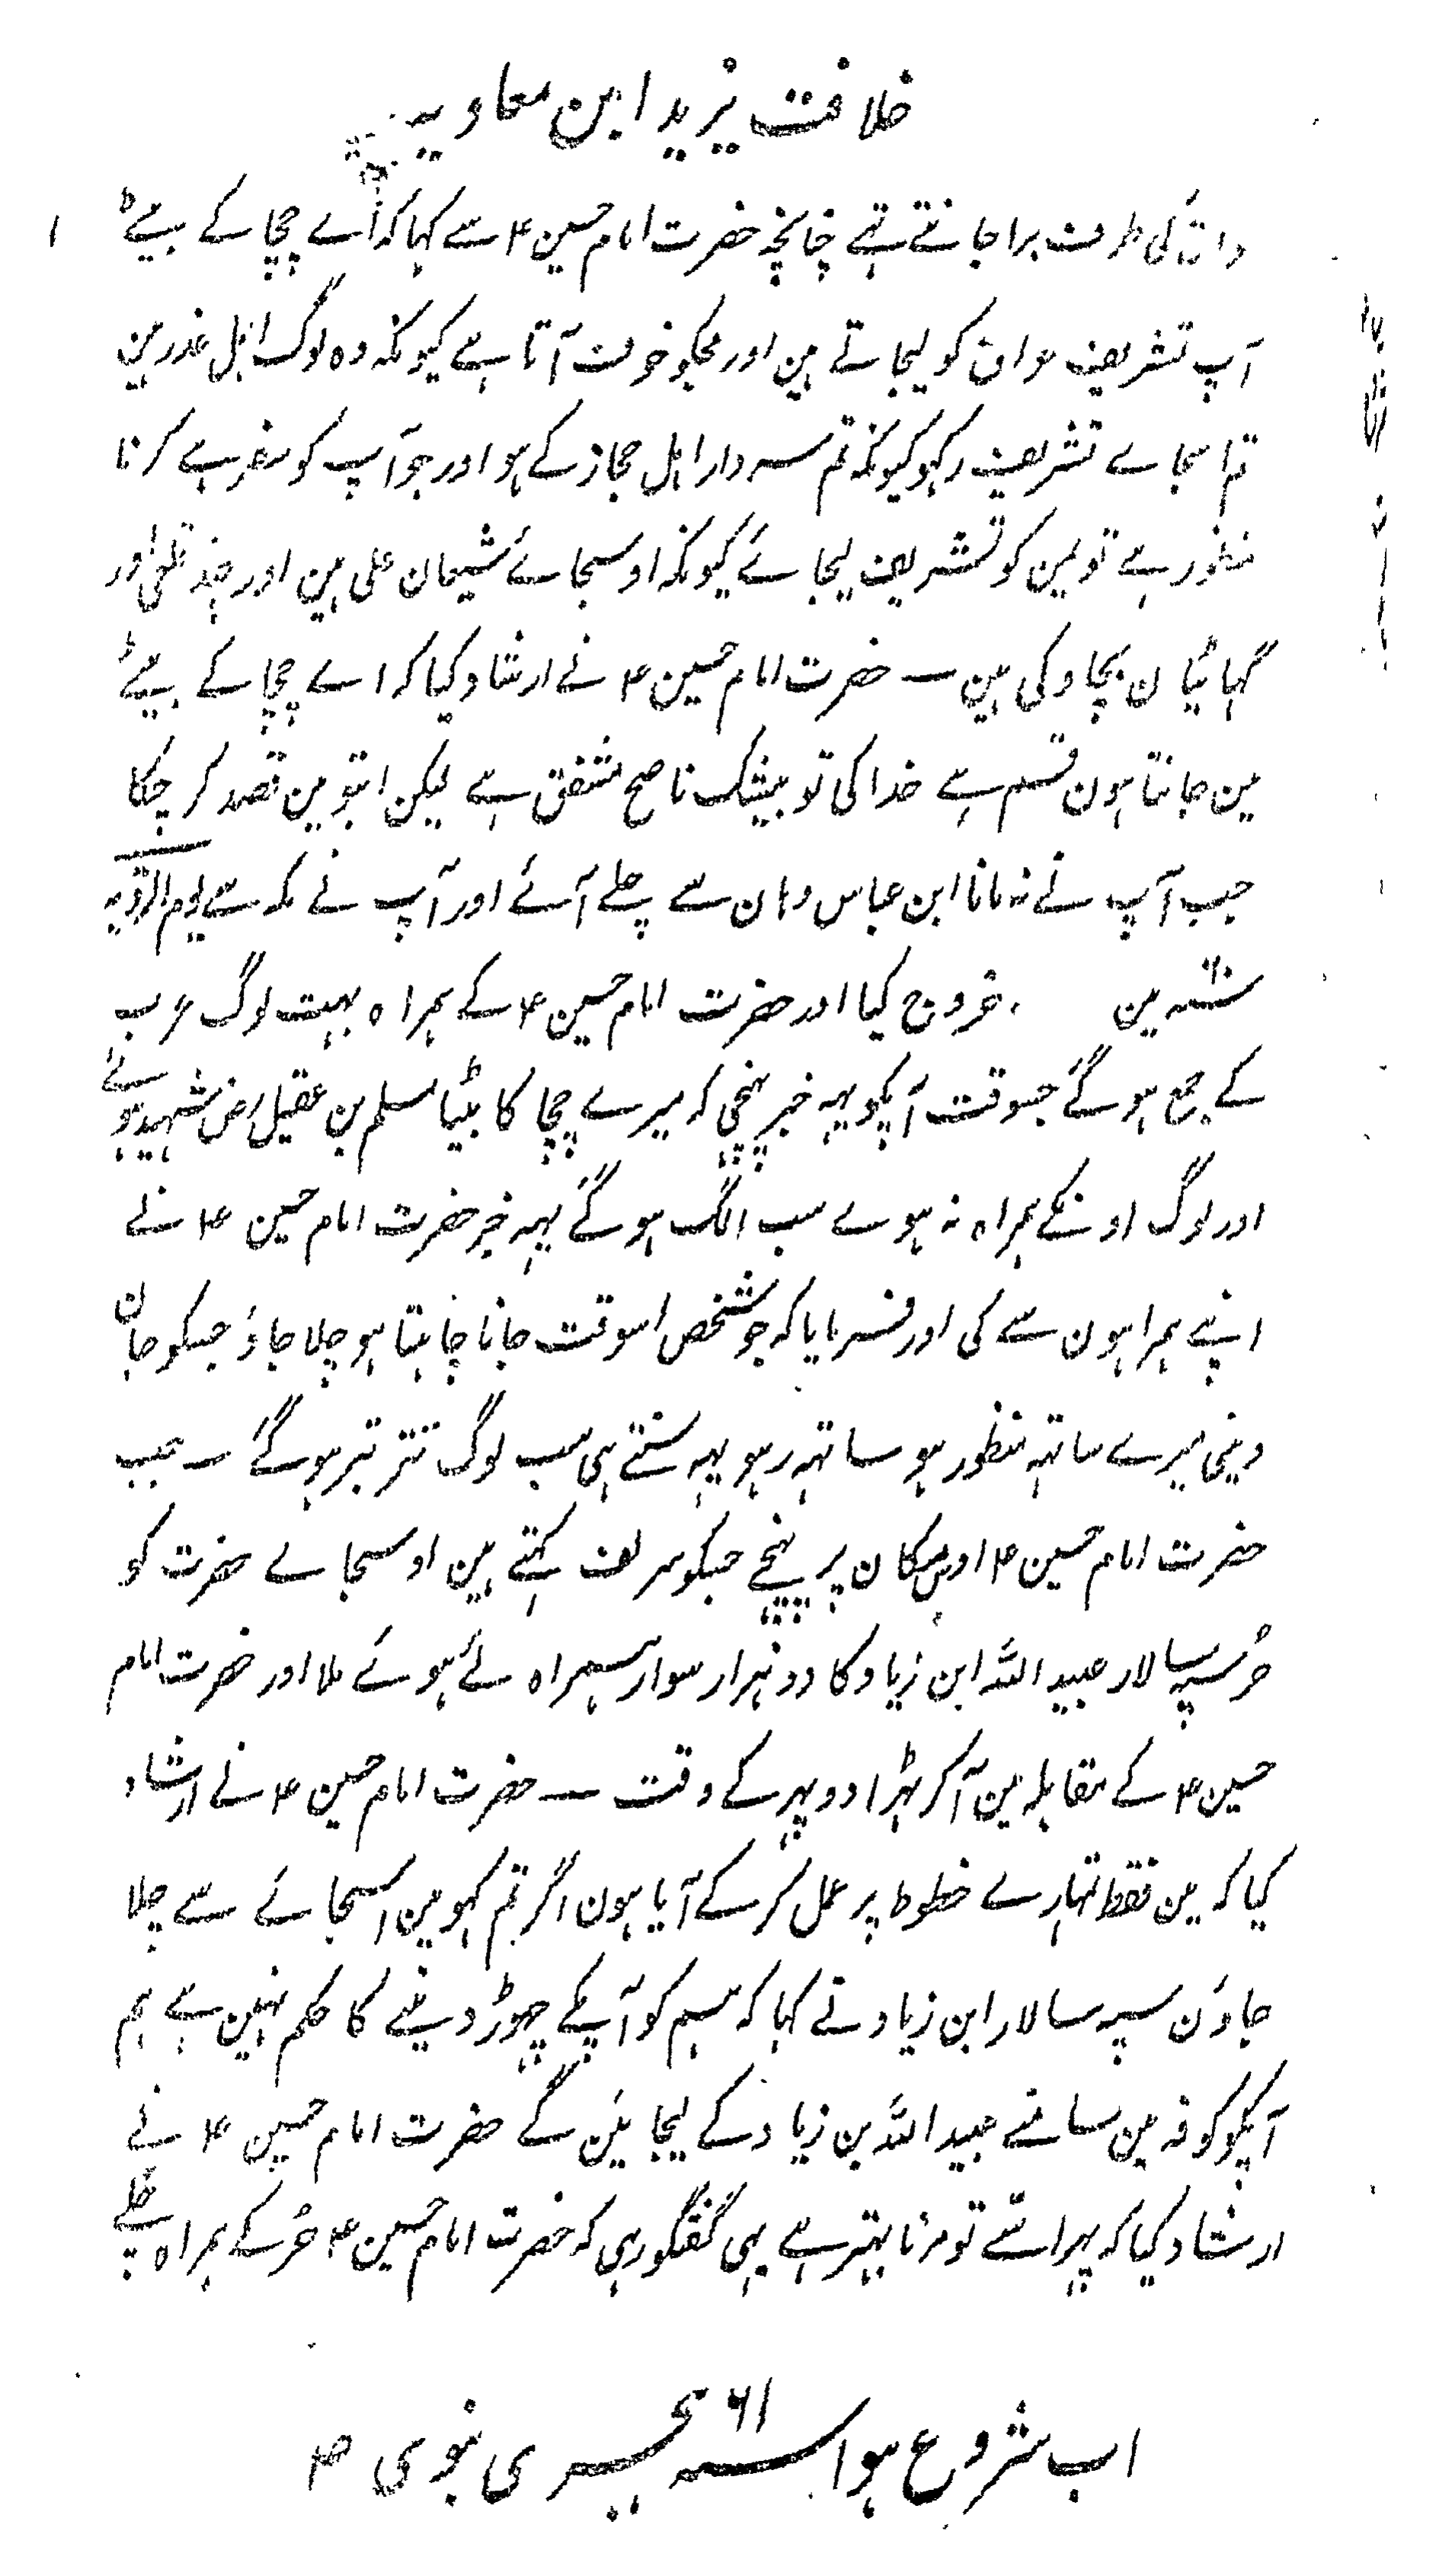 خلافت یزید ابن معاویہ
عراق کی طرف برا جانتے تہے چنانچہ حضرت امام حسین ۴ سے کہا کہ اے چچا کے بیٹے
آپ تشریف عراق کو لیجاتے ہین اور مجکو خوف آتا ہے کیونکہ وہ لوگ اہل غدر ہین
تم اسجاے تشریف رکہو کیونکہ تم سردار اہل حجاز کے ہو اور جو آپ کو سفر ہے کرنا
منظور ہے تو یمن کو تشریف لیجائے کیونکہ اوسجائے شیعان علی ہین اور چند قلعی اور
گہاٹیان بچاو کی ہین ـ حضرت امام حسین ۴ نے ارشاد کیا کہ اے چچا کے بیٹے
مین جانتا ہون قسم ہے خدا کی تو بیشک ناصح مشفق ہے لیکن ابتو مین قصد کر چکا
جب آپ نے نہ مانا ابن عباس وہان سے چلے آئے اور آپ نے مکہ سے یوم الترویہ
سنہ ۶۰ مین خروج کیا اور حضرت امام حسین ۴ کے ہمراہ بہت لوگ عرب
کے جمع ہو گئے جسوقت آپکو یہہ خبر پہنچی کہ میرے چچا کا بیٹا مسلم بن عقیل رض شہید ہوئے
اور لوگ اونکے ہمراہ نہ ہوے سب الگ ہو گئے یہہ خبر حضرت امام حسین ۴ نے
اپنے ہمراہون سے کی اور فرمایا کہ جو شخص اسوقت جانا چاہتا ہو چلا جاؤ جسکو جان
دینی میرے ساتہہ منظور ہو ساتہہ رہو یہہ سنتے ہی سب لوگ تتر بتر ہو گئے ـ جب
حضرت امام حسین ۴ اوس مکان پر پہنچے جسکو سرف کہتے ہین اوسجاے حضرت کو
حُر سپہ سالار عبید اللہ ابن زیاد کا دو ہزار سوار ہمراہ لئے ہوئے ملا اور حضرت امام
حسین ۴ کے مقابلہ مین آکر ٹہرا دوپہر کے وقت ـ حضرت امام حسین ۴ نے ارشاد
کیا کہ مین فقط تمہارے خطوط پر عمل کر کے آیا ہون اگر تم کہو مین اسجائے سے چلا
جاؤن سپہ سالار ابن زیاد نے کہا کہ ہم کو آپکے چہوڑ دینے کا حکم نہین ہے ہم
آپکو کوفہ مین سامنے عبید اللہ بن زیاد کے لیجائین گے حضرت امام حسین ۴ نے
ارشاد کیا کہ پہر اسّے تو مرنا بہتر ہے یہی گفتگو رہی کہ حضرت امام حسین ۴ حُر کے ہمراہ چلے
اب شروع ہوا سنہ ۶۱ ہجری نبوی ص